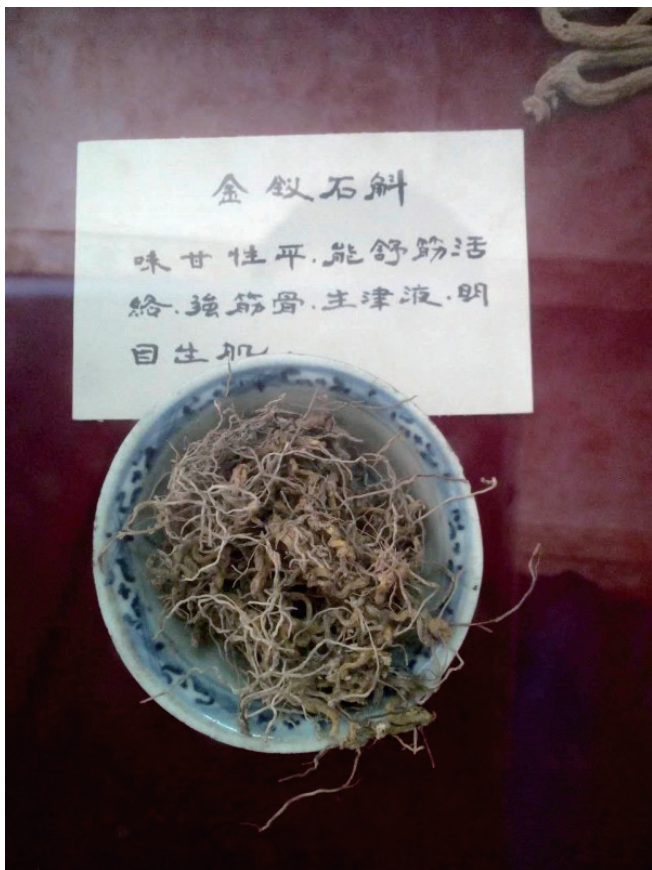 金釵石斛
味甘性平.能舒筋活
絡.強筋骨.生津液.明
目生肌.